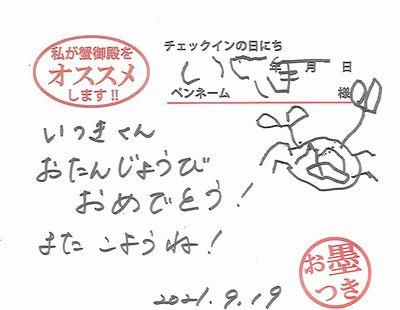 私が蟹御殿を
オススメ
します!!
チェックインの日にち
年 月 日
ペンネーム 様
いつきくん
おたんじょうび
おめでとう!
またこようね!
お墨つき
2021.9.19